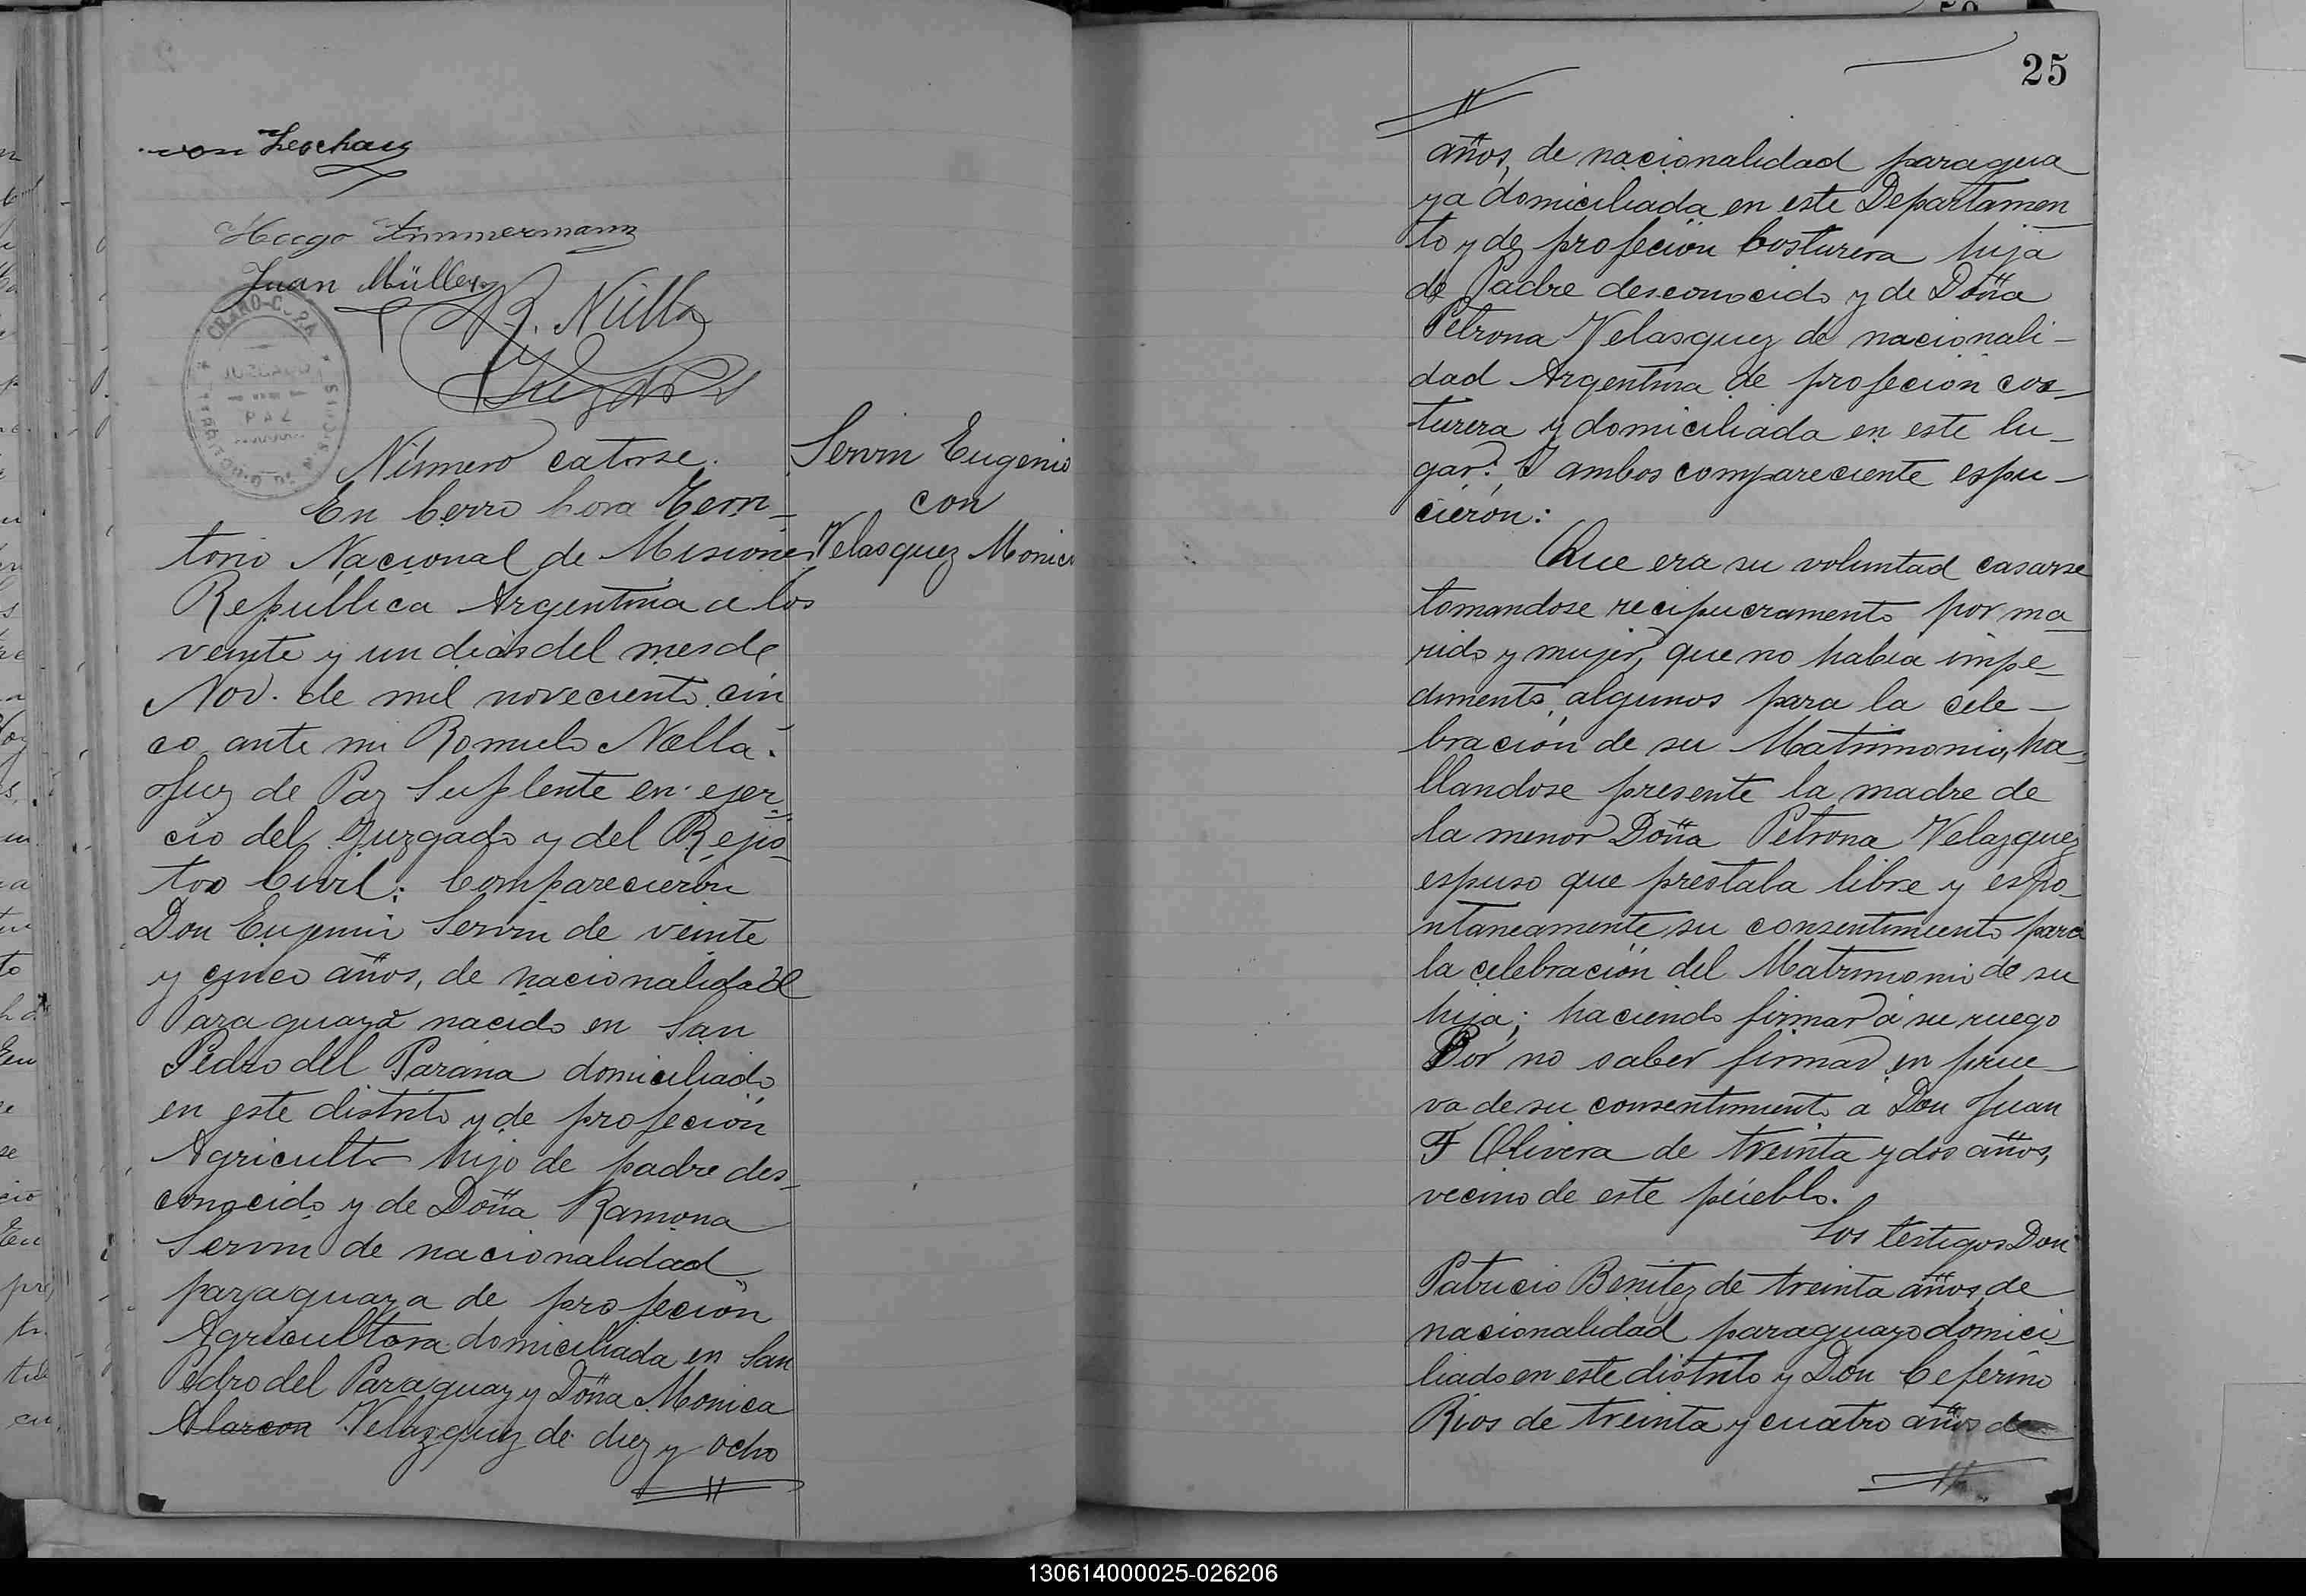 25
von Zeschau
Hugo Zimmermann
Juan Müller
R. Nülla
JUZGADO
PAZ
Número catorse.
Servin Eugenio
con
Velasquez Monica
En Cerro Cora Terri-
torio Nacional de Misiones
República Argentina a los
veinte y un dias del mes de
Nov. de mil noveciento cin
co, ante mi Romulo Nülla.
Juez de Paz Suplente en ejer-
cio del Juzgado y del Rejis-
tro Civil; Comparecierón
Don Eugenio Servin de veinte
y cinco años, de nacionalidad
Paraguaya nacido en San
Pedro del Paraná domiciliado
en este distrito y de profeción
Agricultor hijo de padre des-
conocido y de Doña Ramona
Servin de nacionalidad
paraguaya de profeción
Agricultora domiciliada en San
Pedro del Paraguay y Doña Monica
Alarcon Velazquez de diez y ocho
años, de nacionalidad paragua
ya domiciliada en este Departamen
to y de profeción Costurera hija
de Padre desconocido y de Doña
Petrona Velasquez de nacionali-
dad Argentina de profeción cos-
turera y domiciliada en este lu-
gar: I ambos compareciente espu-
cierón:
Que era su voluntad casarse
tomandose recipucramento por ma-
rido y mujer, que no habia impe-
dimento algunos para la cele-
bración de su Matrimonio, ha-
llandose presente la madre de
la menor Doña Petrona Velazquez
espuso que prestaba libre y espo-
ntaneamente su consentimiento para
la celebración del Matrimonio de su
hija; haciendo firmar á su ruego
Por no saber firmar en prue-
va de su consentimiento a Don Juan
F Olivera de treinta y dos años,
vecino de este pueblo.
Los testigos Don
Patricio Benitez de treinta años de
nacionalidad paraguayo domici-
liado en este distrito y Don Ceferino
Rios de treinta y cuatro años de
130614000025-026206